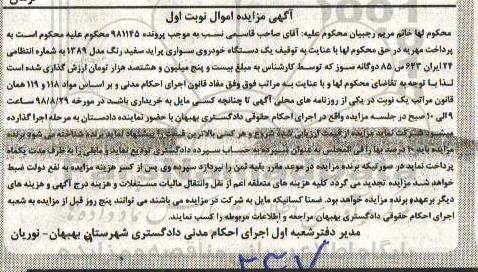 آگهی مزایده اموال نوبت اول
محکوم لها خانم مریم رجبیان محکوم علیه: آقای صاحب قاسمی نسب به موجب پرونده ۹۸۱۱۴۵ محکوم علیه محکوم است به
پرداخت مهریه در حق محکوم لها با عنایت به توقیف یک دستگاه خودروی سواری پراید سفید رنگ مدل ۱۳۸۹ به شماره انتظامی
۲۴ ایران ۶۲۳ س ۸۵ دوگانه سوز که توسط کارشناس به مبلغ بیست و پنج میلیون و هشتصد هزار تومان ارزش گذاری شده است
لذا با توجه به تقاضای محکوم لها و با عنایت به مراتب فوق وفق مفاد قانون اجرای احکام مدنی و بر اساس مواد ۱۱۸ و ۱۱۹ همان
قانون مراتب یک نوبت در یکی از روزنامه های محلی آگهی تا چنانچه کسی مایل به خریداری باشد در مورخه ۹۸/۸/۲۹ ساعت
۹ الی ۱۰ صبح در جلسه مزایده واقع در اجرای احکام حقوقی دادگستری بهبهان با حضور نماینده دادستان به مرحله اجرا گذارده
میشود شرکت نماید مزایده از قیمت ارزیابی شده شروع و هر کسی بالاترین قیمت را پیشنهاد نماید برنده شناخته می شود برنده
مزایده باید ۱۰ درصد بها را فی المجلس به عنوان سپرده به حساب سپرده دادگستری تودیع نماید و مابقی را به ظرف مدت یکماه
پرداخت نماید در صورتیکه برنده مزایده در موعد مقرر بقیه ثمن را نپردازد سپرده وی پس از کسر هزینه مزایده به نفع دولت ضبط
خواهد شد مزایده تجدید می گردد کلیه هزینه های متعلقه اعم از نقل وانتقال مالیات مستغلات و هزینه درج آگهی و هزینه های
دیگر برعهده برنده مزایده خواهد بود. ضمنا کسانیکه مایل به شرکت در مزایده می باشند می توانند پنج روز قبل از مزایده به شعبه
اجرای احکام حقوقی دادگستری بهبهان مراجعه و اطلاعات مربوطه را کسب نمایند.
مدیر دفتر شعبه اول اجرای احکام مدنی دادگستری شهرستان بهبهان - نوریان